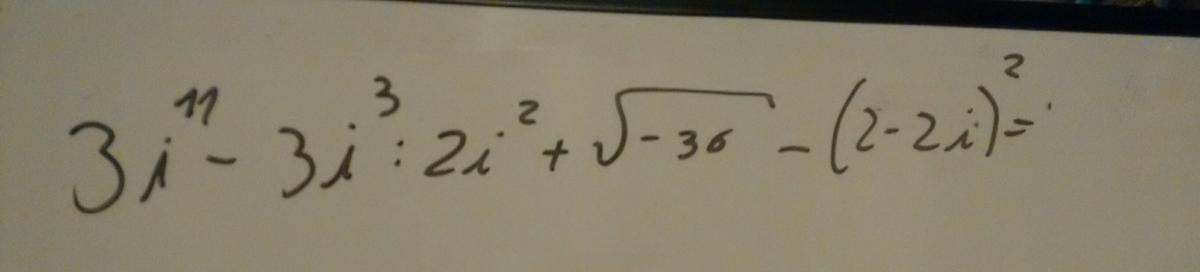 3i¹¹ - 3i³ : 2i² + √-36 - (2-2i)² =